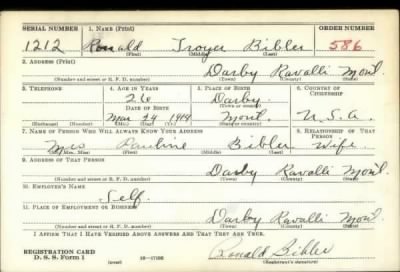 SERIAL NUMBER 1. NAME (Print) ORDER NUMBER
1212 Ronald Troyer Bibler 586
(First) (Middle) (Last)
2. ADDRESS (Print)
Darby Ravalli Mont.
(Number and street or R. F. D. number) (Town) (County) (State)
3. TELEPHONE 4. AGE IN YEARS 5. PLACE OF BIRTH 6. COUNTRY OF CITIZENSHIP
26 Darby
DATE OF BIRTH (Town or county)
Mar 24 1914 Mont. U.S.A.
(Exchange) (Number) (Mo.) (Day) (Yr.) (State or country)
7. NAME OF PERSON WHO WILL ALWAYS KNOW YOUR ADDRESS 8. RELATIONSHIP OF THAT PERSON
Mrs Pauline Bibler Wife
(Mr., Mrs., Miss) (First) (Middle) (Last)
9. ADDRESS OF THAT PERSON
Darby Ravalli Mont.
(Number and street or R. F. D. number) (Town) (County) (State)
10. EMPLOYER'S NAME
Self
11. PLACE OF EMPLOYMENT OR BUSINESS
Darby Ravalli Mont.
(Number and street or R. F. D. number) (Town) (County) (State)
I AFFIRM THAT I HAVE VERIFIED ABOVE ANSWERS AND THAT THEY ARE TRUE.
REGISTRATION CARD
D. S. S. Form 1 (over) Ronald Bibler
(Registrant's signature)